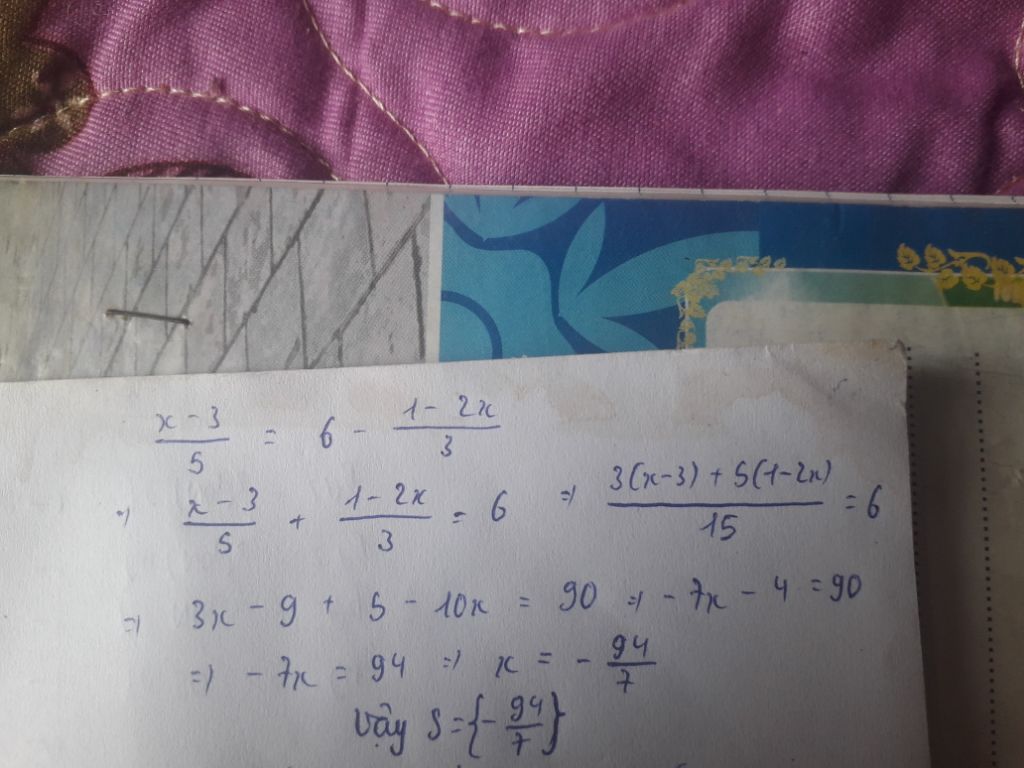 x - 3 / 5 = 6 - 1 - 2x / 3
=> x - 3 / 5 + 1 - 2x / 3 = 6 => 3(x-3) + 5(1-2x) / 15 = 6
=> 3x - 9 + 5 - 10x = 90 => - 7x - 4 = 90
=> - 7x = 94 => x = - 94 / 7
Vậy S = {- 94 / 7}